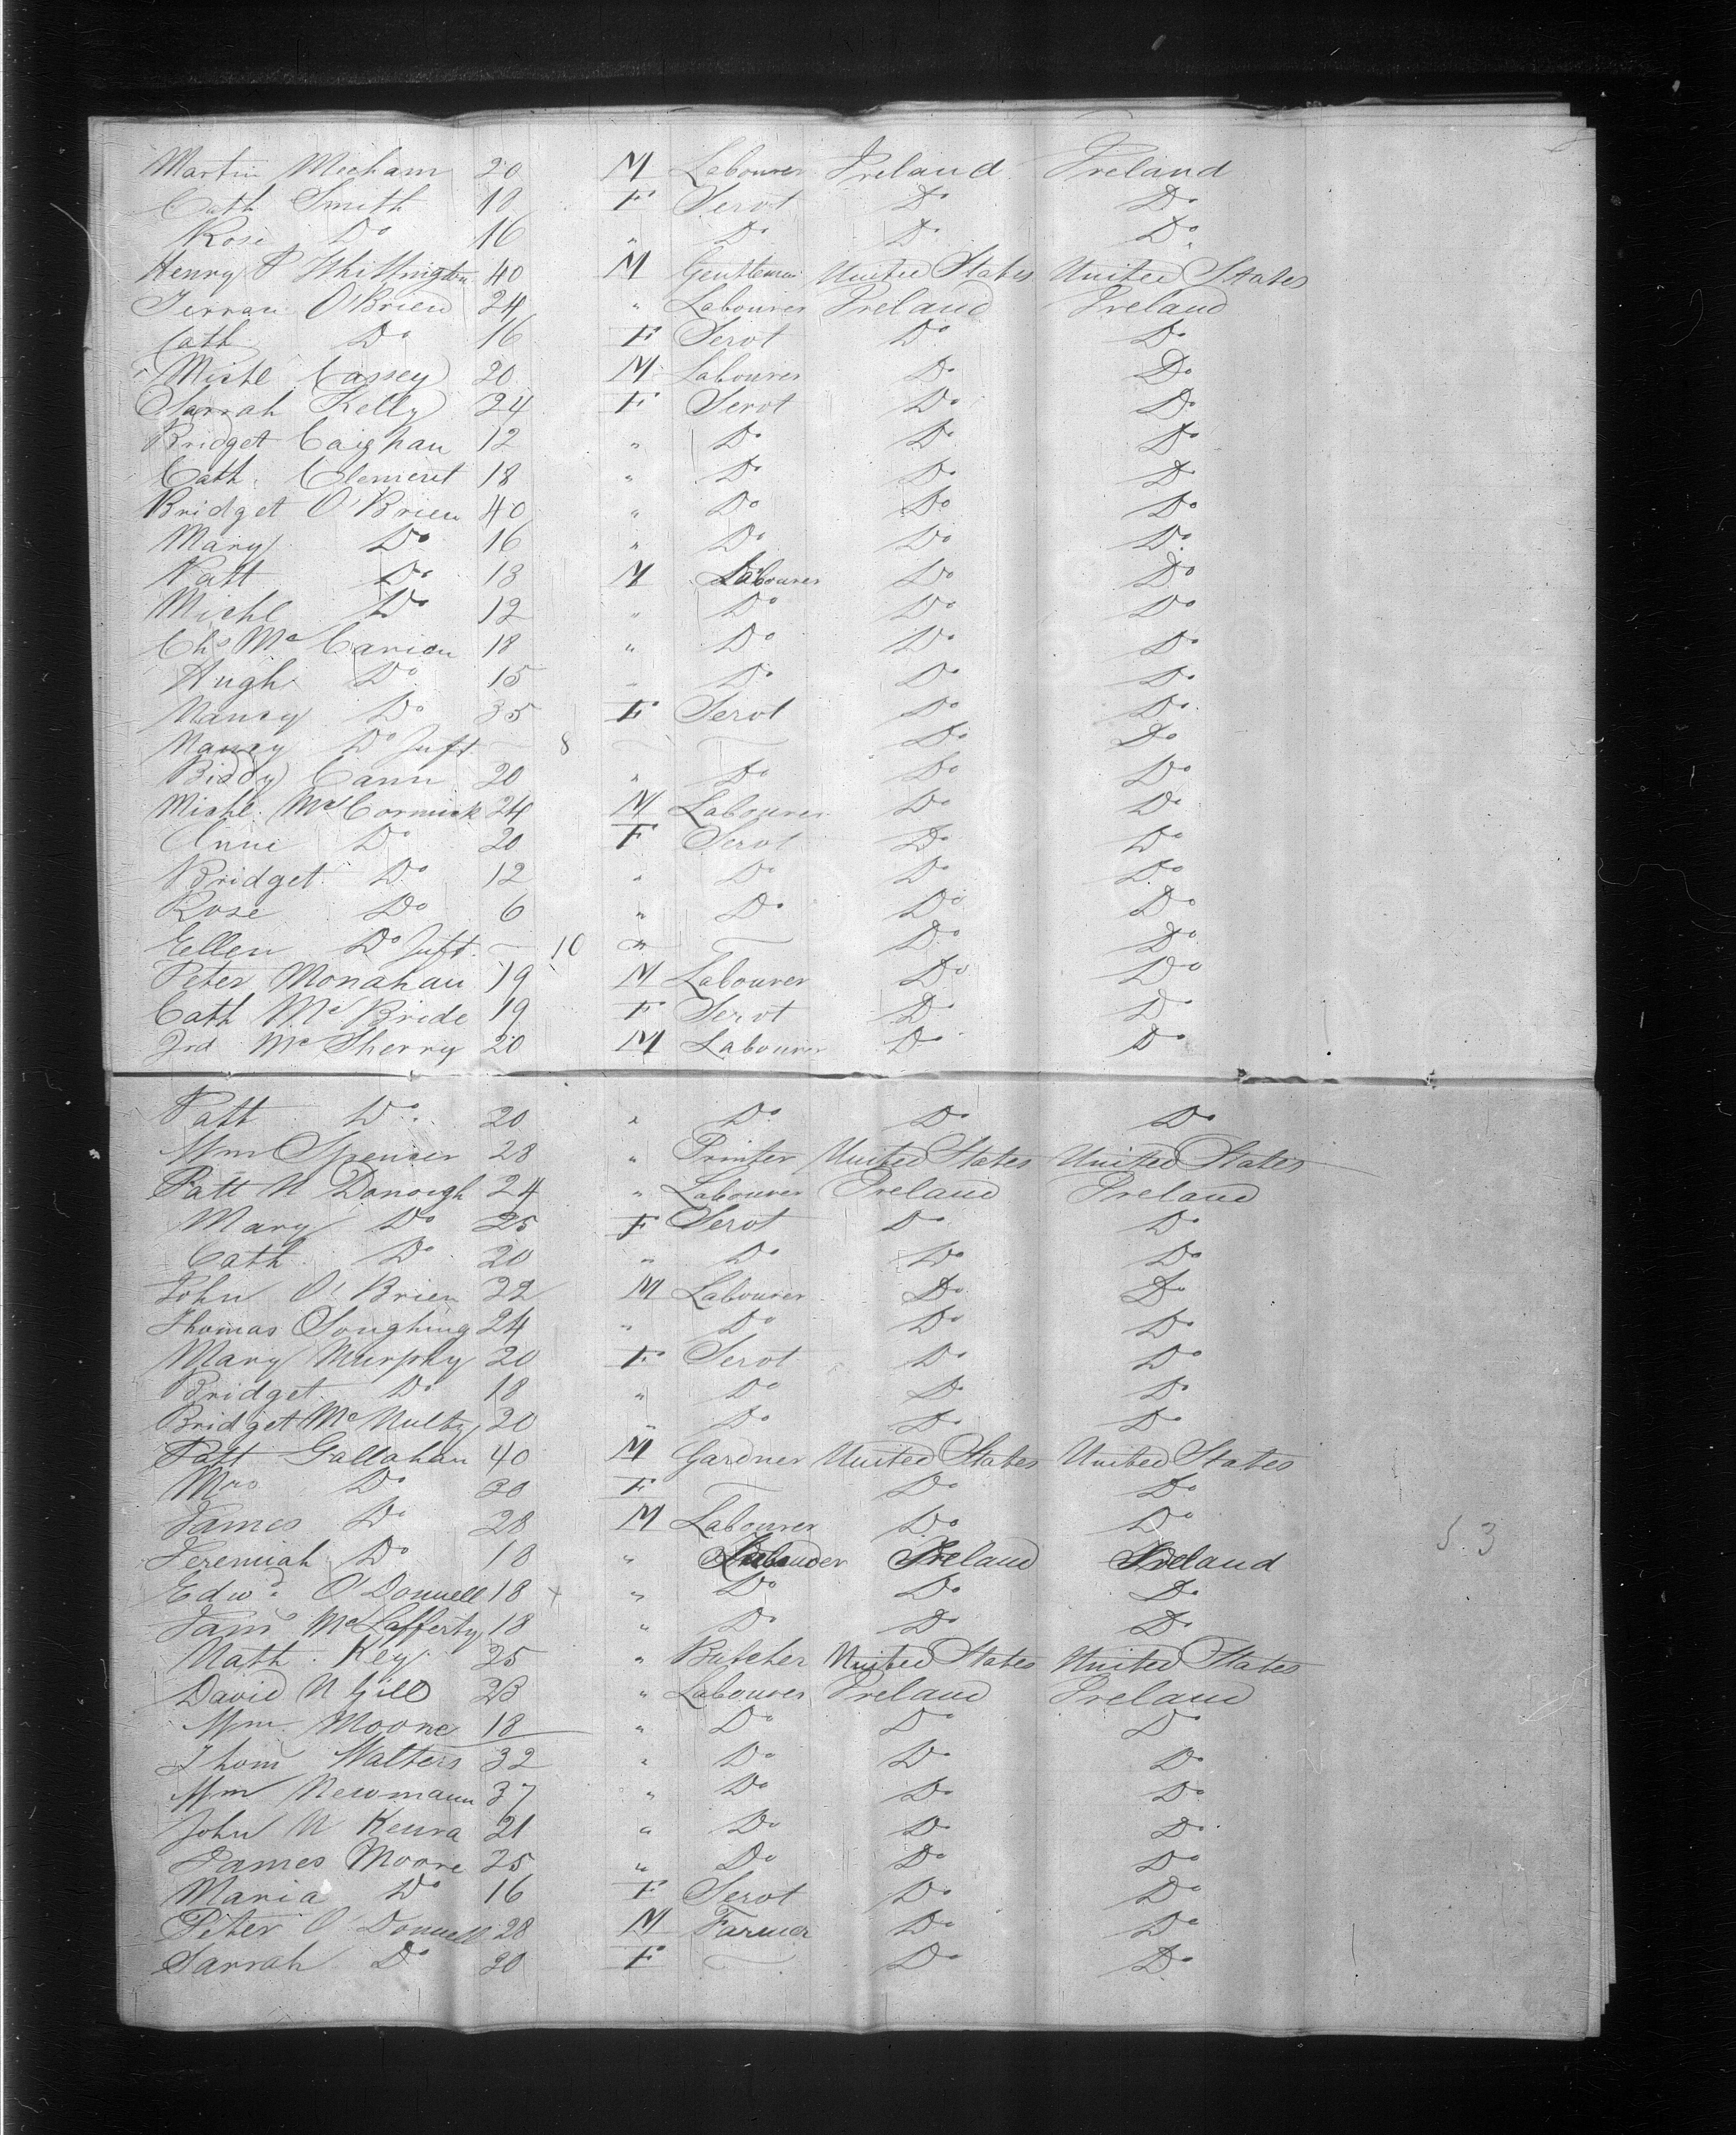 Martin Mecham 20 M Labourer Ireland Ireland
Cath Smith 18 F Servt Do Do
Rose Do 16 " Do Do Do
Henry P Whittington 40 M Gentleman United States United States
O'Brien 24 " Labourer Ireland Ireland
Cath Do 16 F Servt Do Do
Michl Cassey 20 M Labourer Do Do
Sarrah Kelly 24 F Servt Do Do
Bridget Caighan 12 " Do Do Do
Cath. Clement 18 " Do Do Do
Bridget O'Brien 40 " Do Do Do
Mary Do 16 " Do Do Do
Patt Do 13 M Labourer Do Do
Michl Do 12 " Do Do Do
Chs Mc 18 " Do Do Do
Hugh Do 15 " Do Do Do
Nancy Do 35 F Servt Do Do
Nancy Do Inft — 8 — Do Do
Biddy Cann 20 " Do Do Do
Michl. McCormick 24 M Labourer Do Do
Anne Do 20 F Servt Do Do
Bridget Do 12 " Do Do Do
Rose Do 6 " Do Do Do
Ellen Do Inft. — 10 " — Do Do
Peter Monahan 19 M Labourer Do Do
Cath McBride 19 F Servt Do Do
Mc Sherry 20 M Labourer Do Do
Patt Do 20 " Do Do Do
Wm Spencer 28 " Printer United States United States
Patt N Donough 24 " Labourer Ireland Ireland
Mary Do 25 F Servt Do Do
Cath. Do 20 " Do Do Do
John O'Brien 22 M Labourer Do Do
Thomas 24 " Do Do Do
Mary Murphy 20 F Servt Do Do
Bridget Do 18 " Do Do Do
Bridget McNulty 20 " Do Do Do
Patt Gallahan 40 M Gardner United States United States
Mrs Do 20 F — Do Do
James Do 28 M Labourer Do Do
Jeremiah Do 18 " Ireland Ireland
Edwd. O'Donnell 18 " Do Do Do
Jams McLafferty 18 " Do Do Do
Math. Key 25 " Butcher United States United States
David N Gill 23 " Labourer Ireland Ireland
Wm. Moore 18 " Do Do Do
Thom Walters 32 " Do Do Do
Wm Newmann 37 " Do Do Do
John N Kenra 21 " Do Do Do
James Moore 25 " Do Do Do
Maria Do 16 F Servt Do Do
Peter O'Donnell 28 M Farmer Do Do
Sarrah Do 20 F — Do Do